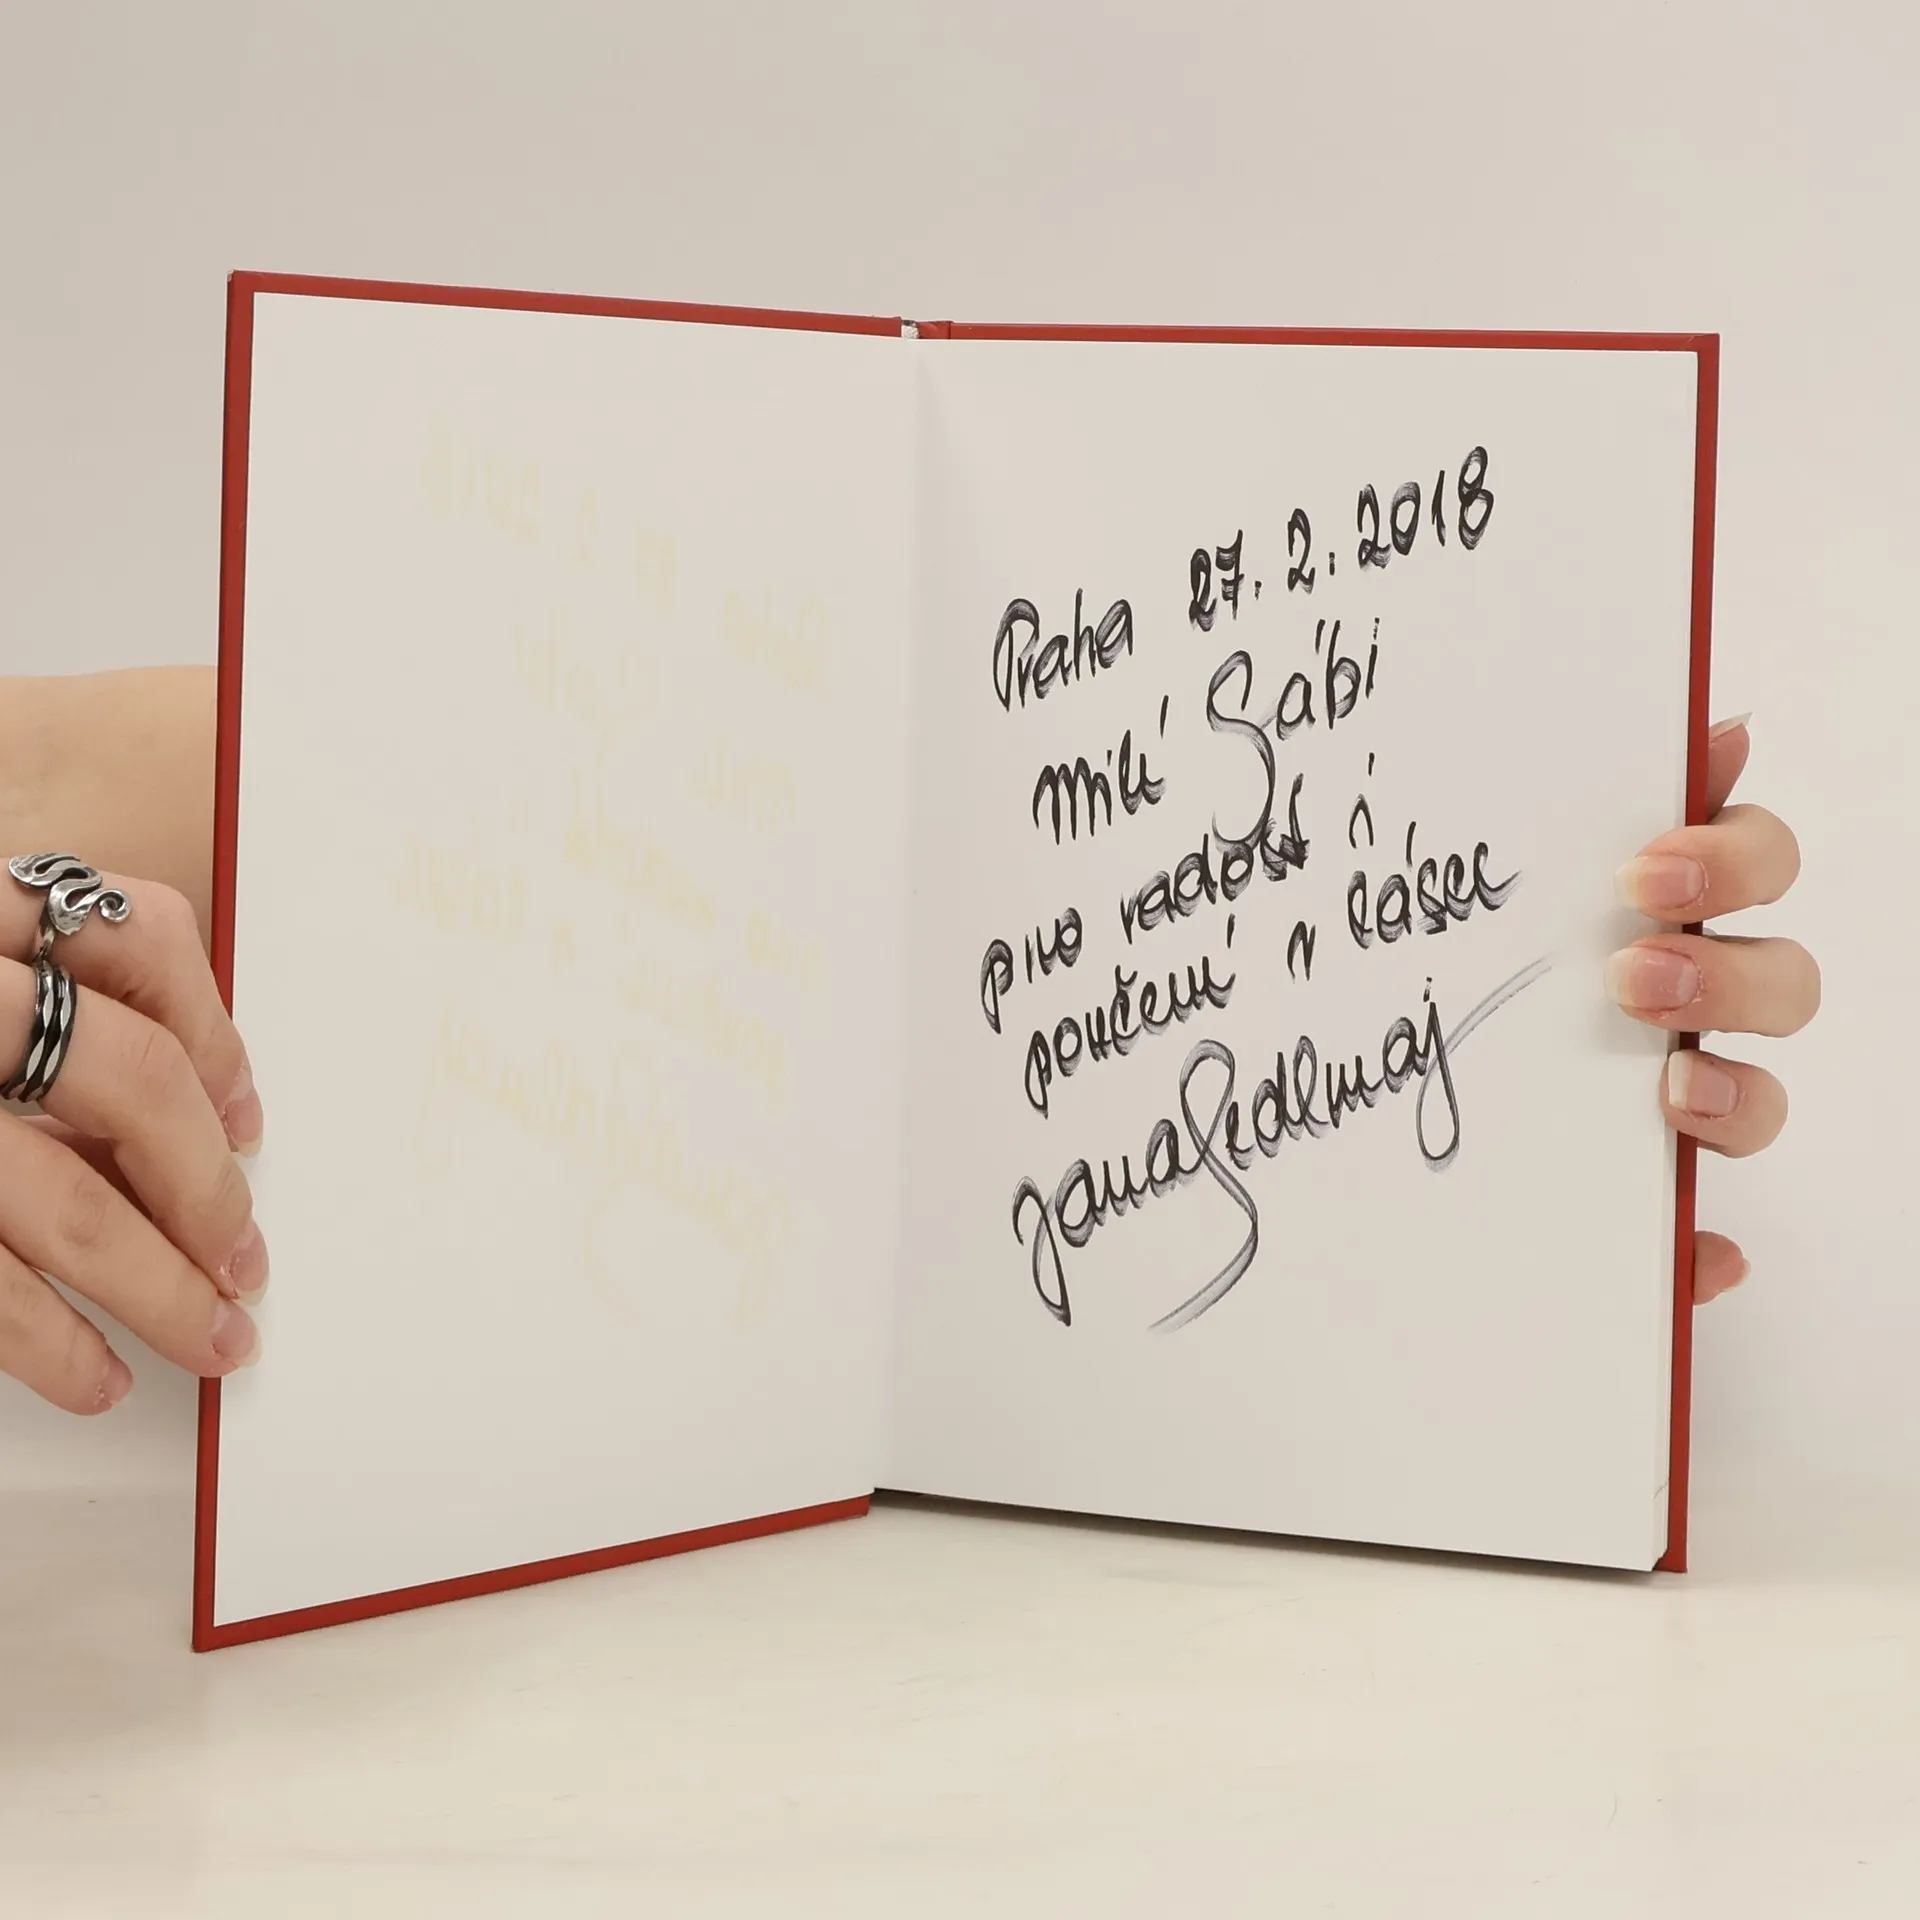 Praha 27. 2. 2018
Milé Sábi
pro radost i
poučení v lásce
Jana Sedlmaj